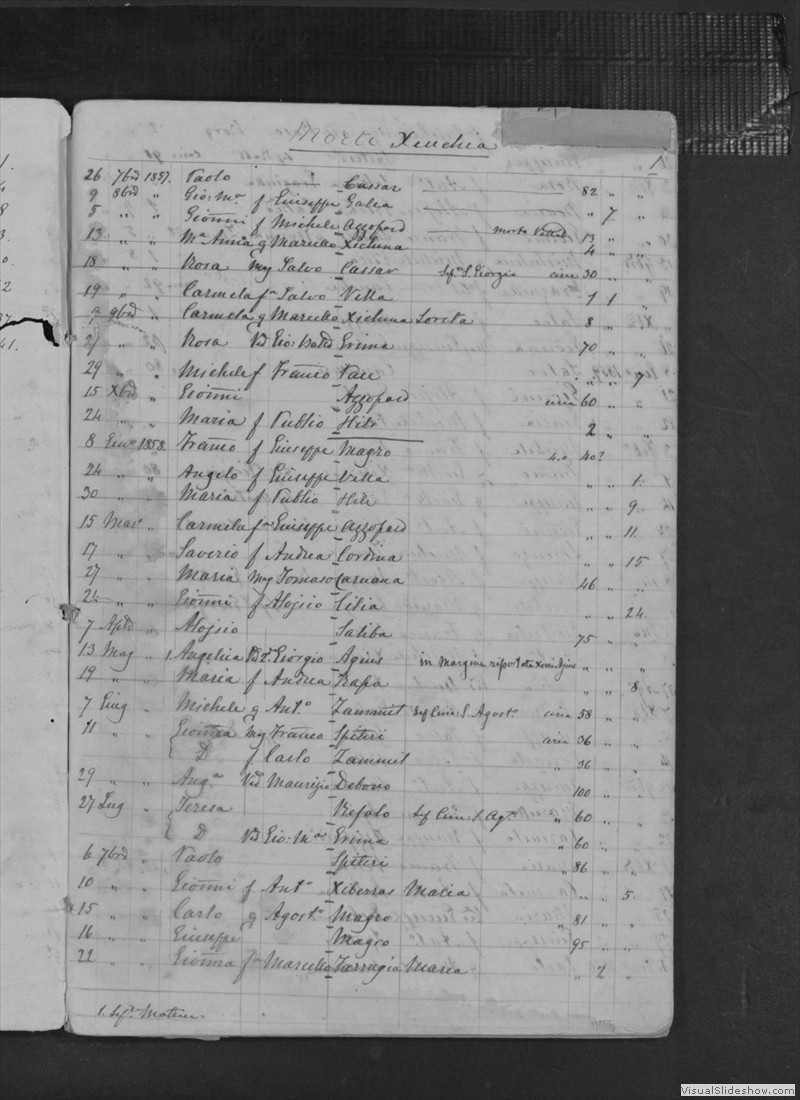 Morti Xeuchia
1
26 7bre 1857. Paolo Cassar 82 " "
9 8bre " Gio: Ma f Giuseppe Galea " 7 "
5 " " Gionni f Michele Azzopard morto Vitt 13 " "
13 " " Ma Anna g Marcello Xicluna 4 " "
18 " Rosa Mog Salvo Cassar Sepa S. Giorgio circa 30 " "
19 " " Carmela fa Salvo Vella 1 1
9 9bre " Carmela g Marcello Xicluna Loreta 8 " "
21 " " Rosa Va Gio: Batta Grima 70 " "
29 " " Michele f Franco Pace " " 7
15 Xbre " Gionni Azzopard circa 60 " "
24 " " Maria f Publio Hili 2 " "
8 Genn 1858. Franco f Giuseppe Magro 40 40? " "
24 " " Angelo f Giuseppe Vella " " 1.
30 " " Maria f Publio Hili " " 9
15 Mar " Carmela fa Giuseppe Azzopard " " 11
17 " " Saverio f Andrea Cordina " " 15
27 " " Maria Mog Tomaso Caruana 46 " "
" " Gionni f Alojsio Cilia " " 24
7 Aple " Alojsio Saliba 75 " "
13 Mag " 1. Angelica Va Giorgio Agius in margine riportata " " "
19 " " Maria f Andrea Rapa " " 8
7 Giug " Michele g Anto Zammit Sep Cim: S. Agosto circa 58 " "
11 " " Gionna Mog Franco Spiteri circa 36 " "
D f Carlo Zammit " 36 " "
29 " " Anga Va Maurizio Debono 100 " "
27 Lug " Teresa Refalo Sep Cim: S. Ago " 60 " "
D Va Gio: Ma Grima " 60 " "
6 7bre " Paolo Spiteri " 86 " "
10 " " Gionni f Anto Xiberras Maria " " 5.
15 " " Carlo g Agosto Magro " 81 " "
16 " " Giuseppe Magro " 95 " "
22 " " Gionna fa Marcello Farrugia Maria " 2 "
1. Sepa Matrice.
VisualSlideshow.com